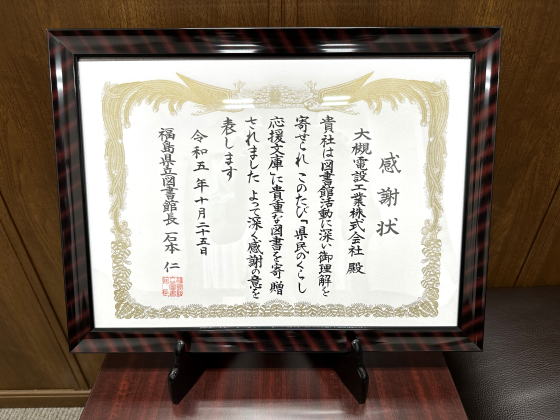 感謝状
大槻電設工業株式会社 殿
貴社は図書館活動に深い御理解を
寄せられ このたび「県民のくらし
応援文庫」に貴重な図書を寄贈
されました よって深く感謝の意を
表します
令和五年十月二十五日
福島県立図書館長 石本 仁